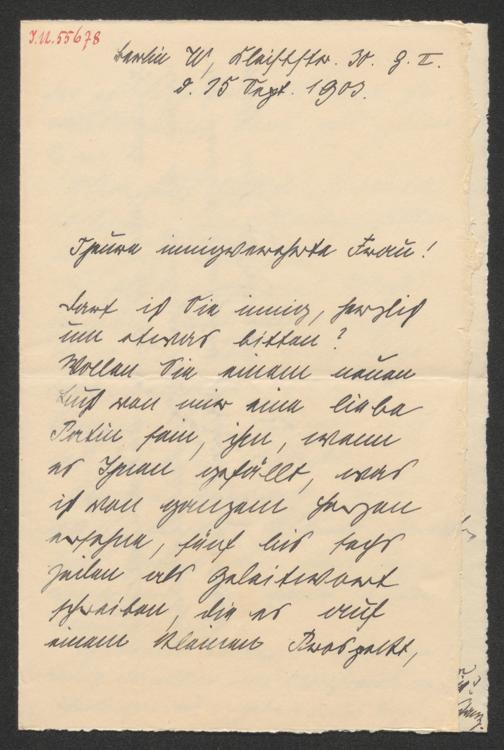 I.N. 55678
Berlin W, Kleiststr. 30. g. II.
d. 15 Sept. 1903.
Theure innigverehrte Frau!
darf ich Sie innig, herzlich
um etwas bitten?
Wollen Sie einem neuen
Buch von mir eine liebe
Patin sein, ihm, wenn
es Ihnen gefällt, was
ich von ganzem Herzen
ersehne, fünf bis sechs
Zeilen als Geleitwort
schreiben, die es auf
einem kleinen Prospekt,